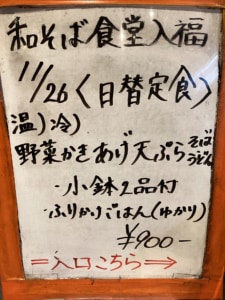 和そば食堂入福
11/26〈日替定食〉
温)冷)
野菜かきあげ天ぷらそばうどん
・小鉢2品付
・ふりかけごはん(ゆかり)
¥900-
=入口こちら⇒